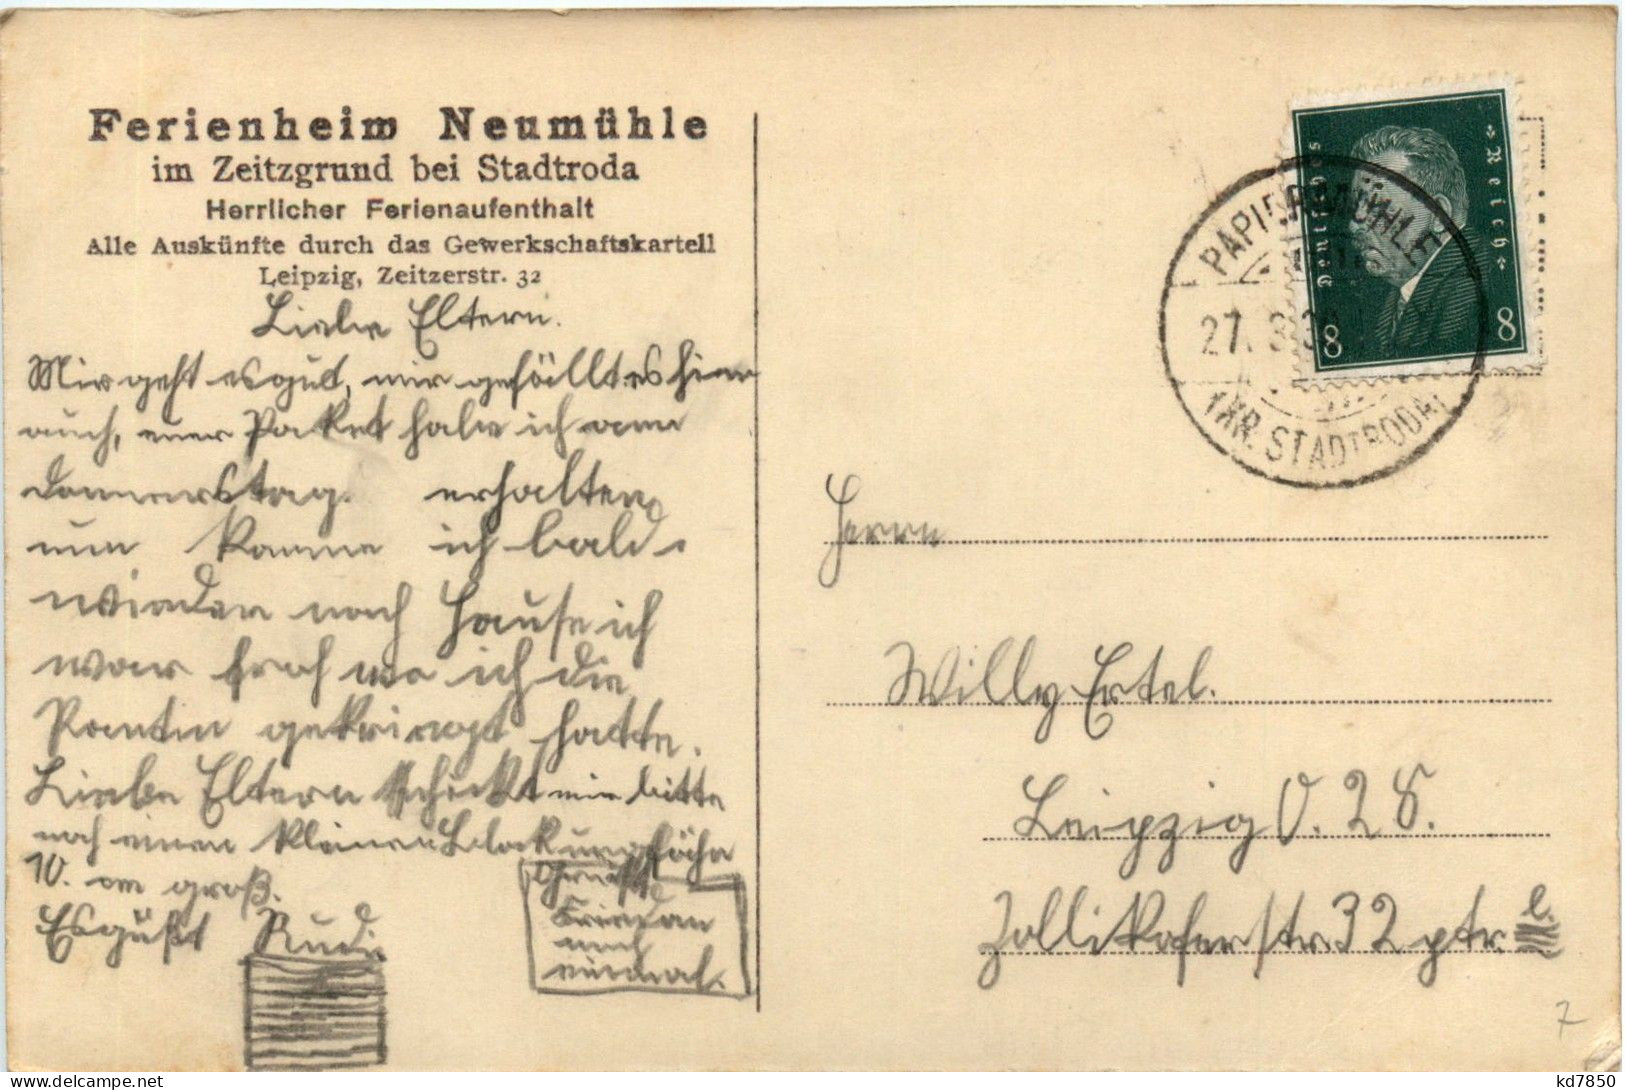 Ferienheim Neumühle
im Zeitzgrund bei Stadtroda
Herrlicher Ferienaufenthalt
Alle Auskünfte durch das Gewerkschaftskartell
Leipzig, Zeitzerstr. 32
Liebe Eltern.
Mir geht es gut, mir gefällt es hier
auch, euer Paket habe ich am
Donnerstag. erhalten
nun komme ich bald.
wieder nach Hause ich
war froh wo ich die
Kantin gekriegt hatte.
Liebe Eltern schickt mir bitte
noch einen kleinen
10. cm groß.
Es güßt Rudi
Frieda
noch
einmal.
Deutsches Reich
8 8
PAPIERMÜHLE
27. 8. 3
(KR. STADTRODA)
Herrn
Willy Ertel.
Leipzig O. 28.
Zollikoferstr. 32 ptr. l.
7
kd7850